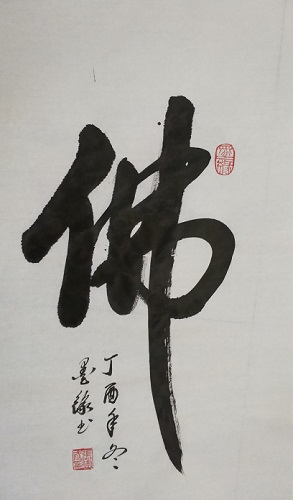 佛
丁酉年冬
墨緣书